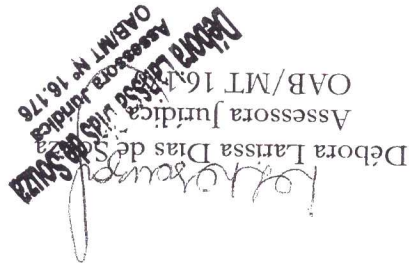 Débora Larissa Dias de Souza
Assessora Jurídica
OAB/MT 16.176
Débora Larissa Dias de Souza
Assessora Jurídica
OAB/MT Nº 16.176